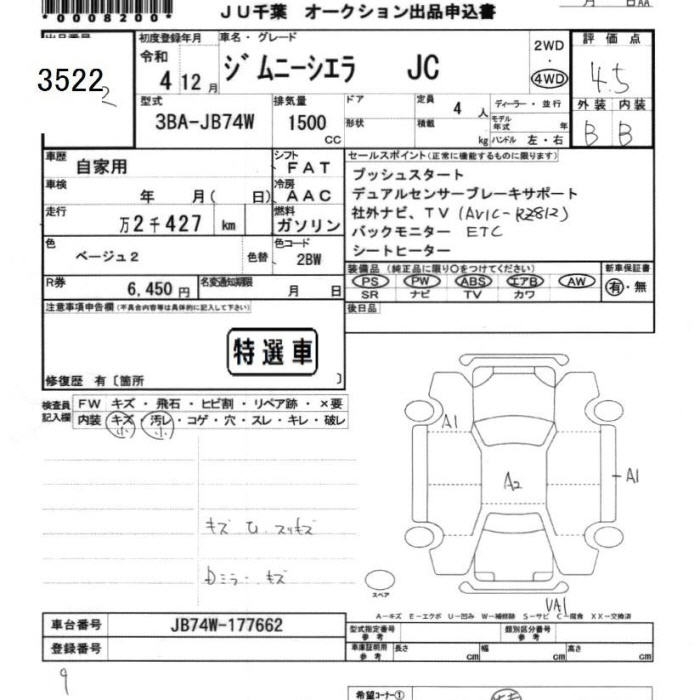 *0008200*
JU千葉 オークション出品申込書
月 日AA
出品番号
3522
2
初度登録年月
令和
4 12 月
車名・グレード
ジムニーシエラ JC
2WD
・
4WD
評価点
4.5
外装 内装
B B
型式
3BA-JB74W
排気量
1500
CC
ドア
形状
定員
4 人
積載
kg
ディーラー・並行
モデル年式 年
ハンドル 左・右
車歴
自家用
シフト
FAT
車検
年 月( 日)
冷房
AAC
走行
万2千427 km
燃料
ガソリン
色
ベージュ2
色替
色コード
2BW
R券
6,450 円
名変通知期限
月 日
セールスポイント(正常に機能するものに限ります)
プッシュスタート
デュアルセンサーブレーキサポート
社外ナビ、TV(AVIC-RZ812)
バックモニター ETC
シートヒーター
装備品(純正品に限り○をつけてください)
PS PW ABS エアB AW
SR ナビ TV カワ
新車保証書
有・無
後日品
注意事項申告欄(不具合内容等は具体的に記入して下さい)
特選車
修復歴 有〔箇所 〕
検査員記入欄
FW キズ・飛石・ヒビ割・リペア跡・×要
内装 キズ・汚レ・コゲ・穴・スレ・キレ・破レ
小 小
A1
A1
A2
VA1
スペア
A-キズ E-エクボ U-凹み W-補修跡 S-サビ C-腐食 XX-交換済
車台番号
JB74W-177662
登録番号
型式指定番号
参考
類別区分番号
参考
車庫証明用
参考
長さ cm
幅 cm
高さ cm
希望コーナー①
9